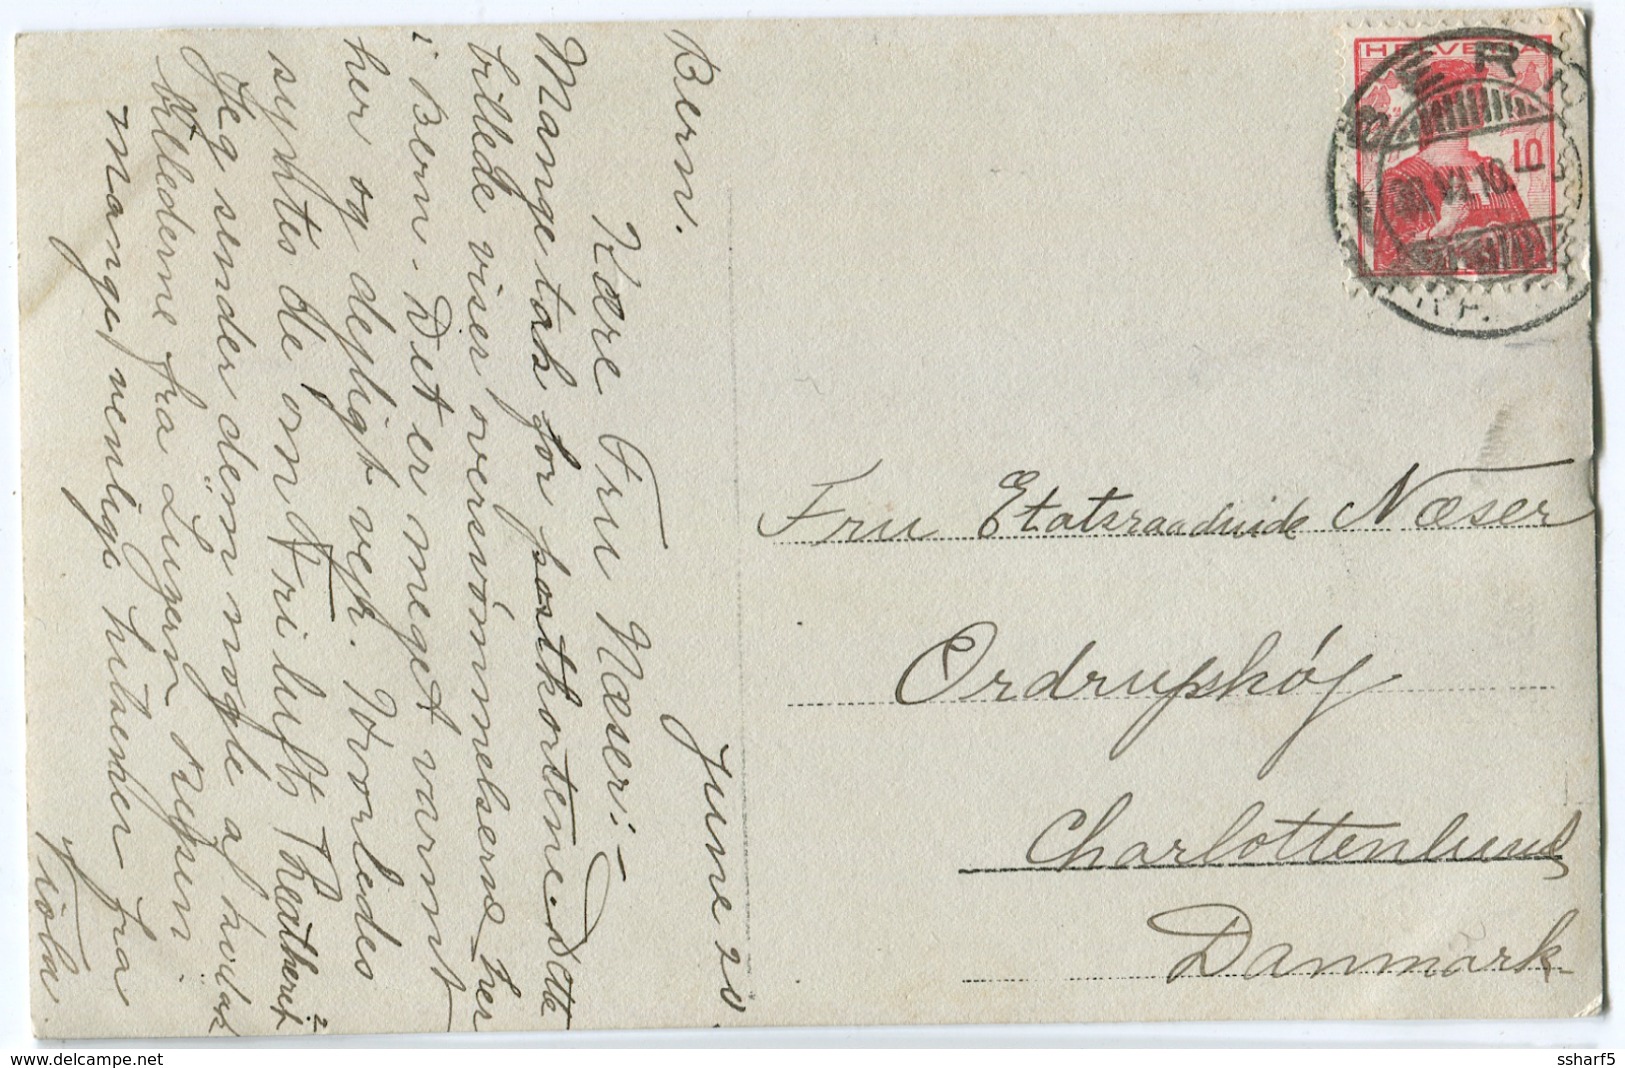 Bern. June 20.
Kære Fru Næser:-
Mange tak for postkortene. Dette
billede viser oversvömmelserne her
i Bern. Det er meget varmt
her og dejligt vejr. Hvorledes
syntes de om Fri lufts Theatheret?
Jeg sender dem nogle af
billederne fra Luzern
mange, venlige hilsener fra
Viola.
HELVETIA
10
BERN
VI.10.
Fru Etatsraadinde Næser
Ordrupshöj
Charlottenlund
Danmark
www.delcampe.net
ssharf5